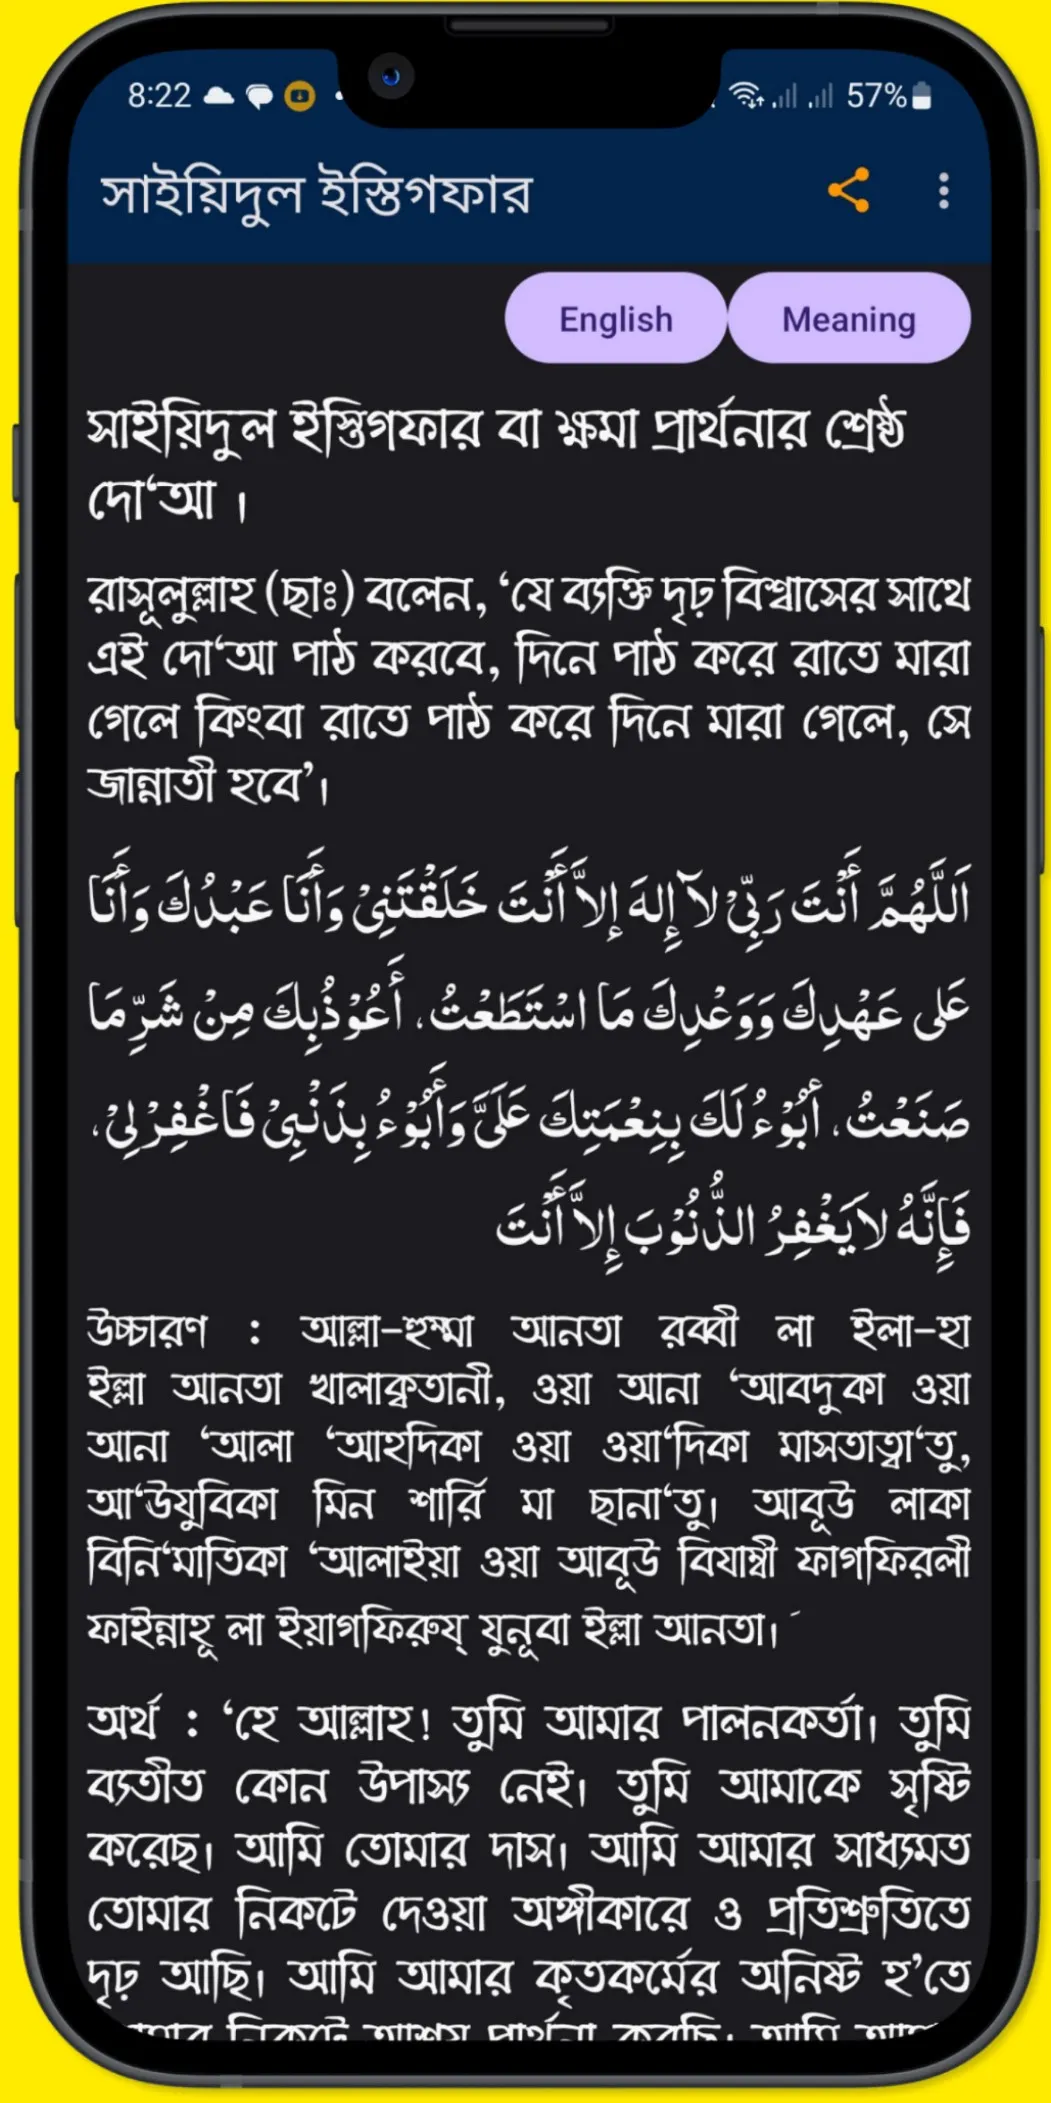 8:22
57%
সাইয়িদুল ইস্তিগফার
English
Meaning
সাইয়িদুল ইস্তিগফার বা ক্ষমা প্রার্থনার শ্রেষ্ঠ
দো‘আ ।
রাসূলুল্লাহ (ছাঃ) বলেন, ‘যে ব্যক্তি দৃঢ় বিশ্বাসের সাথে
এই দো‘আ পাঠ করবে, দিনে পাঠ করে রাতে মারা
গেলে কিংবা রাতে পাঠ করে দিনে মারা গেলে, সে
জান্নাতী হবে’।
اَللَّهُمَّ أَنْتَ رَبِّىْ لآ إِلهَ إِلاَّ أَنْتَ خَلَقْتَنِىْ وَأَنَا عَبْدُكَ وَأَنَا
عَلى عَهْدِكَ وَوَعْدِكَ مَا اسْتَطَعْتُ، أَعُوْذُبِكَ مِنْ شَرِّمَا
صَنَعْتُ، أبُوْءُ لَكَ بِنِعْمَتِكَ عَلَىَّ وَأَبُوْءُ بِذَنْبِىْ فَاغْفِرْلِىْ،
فَإِنَّهُ لاَيَغْفِرُ الذُّنُوْبَ إِلاَّ أَنْتَ
উচ্চারণ : আল্লা-হুম্মা আনতা রব্বী লা ইলা-হা
ইল্লা আনতা খালাক্বতানী, ওয়া আনা ‘আবদুকা ওয়া
আনা ‘আলা ‘আহদিকা ওয়া ওয়া‘দিকা মাসতাত্বা‘তু,
আ‘উযুবিকা মিন শার্রি মা ছানা‘তু। আবূউ লাকা
বিনি‘মাতিকা ‘আলাইয়া ওয়া আবূউ বিযাম্বী ফাগফিরলী
ফাইন্নাহূ লা ইয়াগফিরুয্ যুনূবা ইল্লা আনতা।
অর্থ : ‘হে আল্লাহ! তুমি আমার পালনকর্তা। তুমি
ব্যতীত কোন উপাস্য নেই। তুমি আমাকে সৃষ্টি
করেছ। আমি তোমার দাস। আমি আমার সাধ্যমত
তোমার নিকটে দেওয়া অঙ্গীকারে ও প্রতিশ্রুতিতে
দৃঢ় আছি। আমি আমার কৃতকর্মের অনিষ্ট হ’তে
নিকটে আশ্রয় প্রার্থনা করছি। আমি